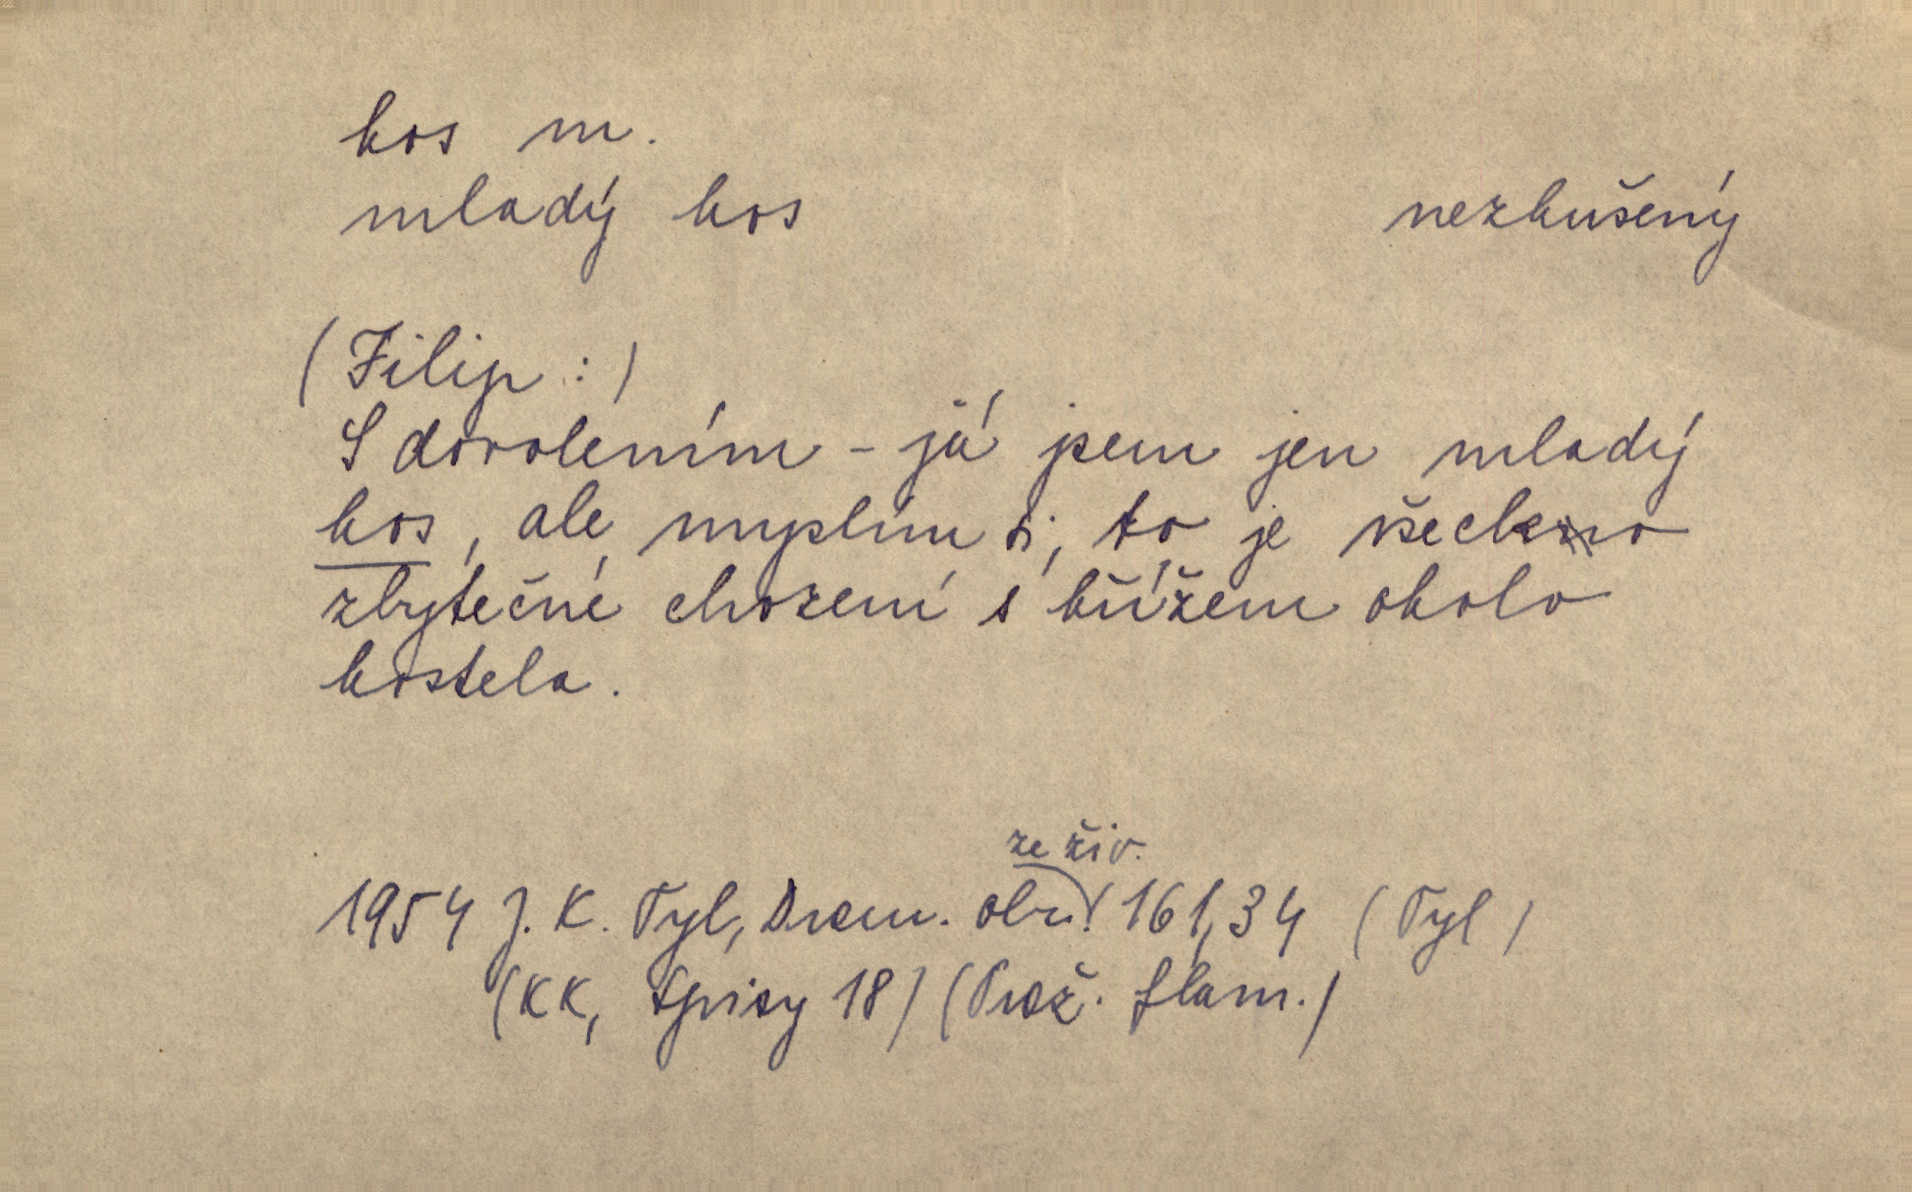 kos m.
mladý kos nezkušený
(Filip:)
S dovolením - já jsem jen mladý
kos, ale myslím si, to je všecko
zbytečné chození s křížem okolo
kostela.
ze živ.
1954 J. K. Tyl, Dram. obr. 161,34 (Tyl)
(KK, Spisy 18) (Praž. flam.)